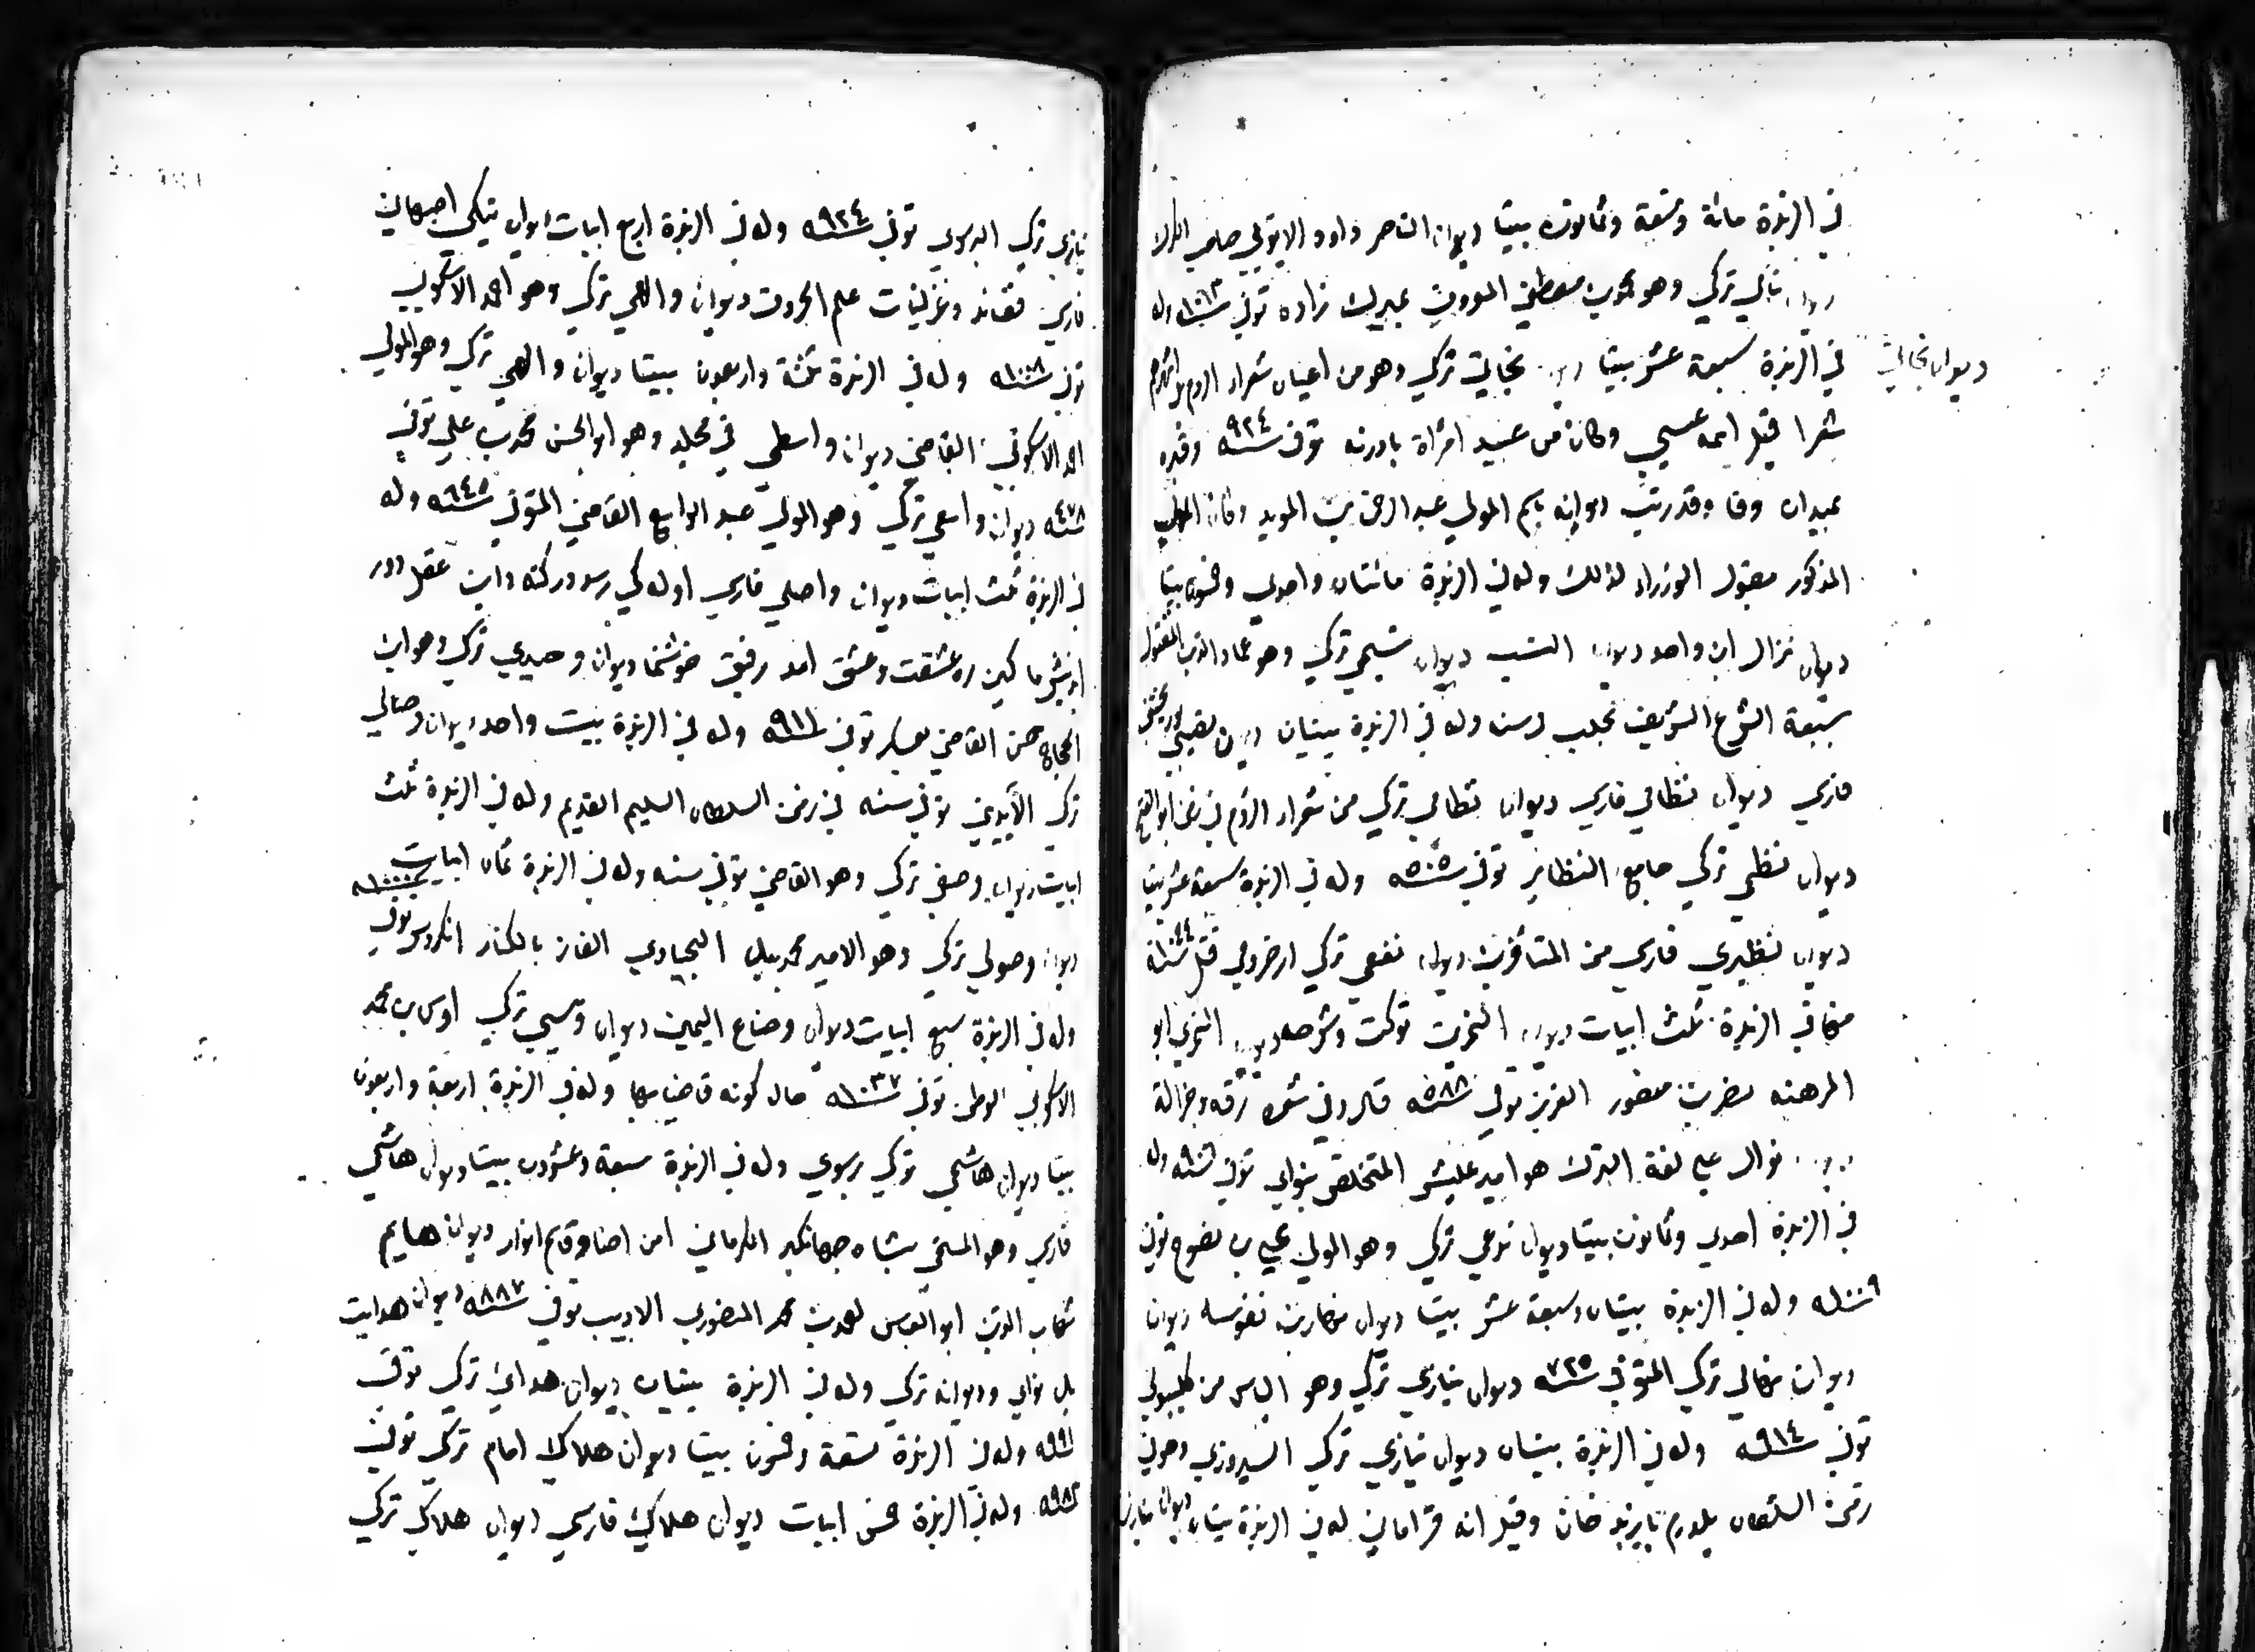 في الزبدة مائة وتسعة وثمانون بيتا ديوان الناصر داود الايوبي صاحب الكرك
ديوان نالي تركي وهو محمد بن مصطفى المعروف بميرك زاده توفي سنة وله
في الزبدة سبعة عشر بيتا ديوان نجاتي تركي وهو من اعيان شعراء الروم
ديوان نجاتي
شعرا قيل اسمه عيسى وكان من عبيد امرأة بادرنه توفي سنه ٩٢٤ وقبره
بميدان وفا وقد رتب ديوانه باسم المولى عبد الرحمن بن المويد وكان المولى
المذكور مقبول الوزراء لذلك وله في الزبدة مائتان واحدى وخمسون بيتا
ديوان نزال ابن واحد ديوان النسب ديوان نسيمي تركي وهو عماد الدين المقتول
بسبعة الشرع الشريف بحلب وسنه وله في الزبدة بيتان ديوان
فارسي ديوان نظامي فارسي ديوان نظامي تركي من شعراء الروم في زمن ابو الفتح
ديوان نظمي تركي جامع النظاير توفي سنه وله في الزبدة سبعة عشر بيتا
ديوان نظيري فارسي من المتأخرين ديوان نفعي تركي ارضرومي قتل سنة ١٠٤٤
وله في الزبدة ثلث ابيات ديوان ديوان النميري ابو
المرهف نصر بن منصور توفي سنه ٥٨٨ قال وفي شعره رقة وجزالة
ديوان نوائي على لغة الترك هو امير عليشير المتخلص بنوائي توفي سنه وله
في الزبدة احدى وثمانون بيتا ديوان نوعي تركي وهو المولى يحيى بن نصوح توفي
سنه وله في الزبدة بيتان وسبعة عشر بيتا ديوان
ديوان نهالي تركي المتوفى سنه ديوان نيازي تركي وهو الياس من كليبولي
توفي سنه ٩١٤ وله في الزبدة بيتان ديوان نيازي تركي السيروزي وهو في
زمن السلطان يلدرم بايزيد خان وقيل انه قراماني له في الزبدة بيتان ديوان
نيازي تركي البرسوي توفي سنه ٩٢٤ وله في الزبدة اربع ابيات ديوان نيكي اصبهاني
فارسي قصائد وغزليات على الحروف ديوان والهي تركي وهو احمد الاسكوبي
توفي سنه ١٠٠٨ وله في الزبدة ثلثة واربعون بيتا ديوان والهي تركي وهو المولى
احمد الاسكوبي القاضي ديوان واسطي في مجلد وهو ابو الحسن محمد بن علي توفي
سنه ٤٧٨ ديوان واسعي تركي وهو المولى عبد الواسع القاضي المتوفى سنه وله
في الزبدة ثلث ابيات ديوان واصلي فارسي اوله كي رسد در كنه ذات عقل دور
انديش ما كين ره عشقت وعشق امد رفيق خوشنما ديوان وحيدي تركي وهو ابن
الحجاج حسن القاضي بعسكر توفي سنه ٩١١ وله في الزبدة بيت واحد ديوان وصالي
تركي الآيديني توفي سنه في زمن السلطان السليم القديم وله في الزبدة ثلث
ابيات ديوان وصفي تركي وهو القاضي توفي سنه وله في الزبدة ثمان ابيات
ديوان وصولي تركي وهو الامير محمد بيك اليحياوي الغاز بالكفار انكروس توفي سنه ١٠٠٠
وله في الزبدة سبع ابيات ديوان وضاح اليمن ديوان ويسي تركي اويس بن محمد
الاسكوبي الوطن توفي سنه ١٠٣٧ حال كونه قاضيا بها وله في الزبدة اربعة واربعون
بيتا ديوان هاشمي تركي برسوي وله في الزبدة سبعة وعشرون بيتا ديوان هاشمي
فارسي وهو المسمى بشاه جهانكير الكرماني من احفاد قاسم انوار ديوان هايم
شهاب الدين ابو العباس احمد بن محمد المنصوري الاديب توفي سنه ٨٨٧ ديوان هدايت
بك وديوانه تركي وله في الزبدة بيتان ديوان هدائي تركي توفي
سنه ٩٩١ وله في الزبدة تسعة وخمسون بيتا ديوان هلاكي امام تركي توفي
سنه ٩٨٣ وله في الزبدة خمس ابيات ديوان هلاكي فارسي ديوان هلاكي تركي